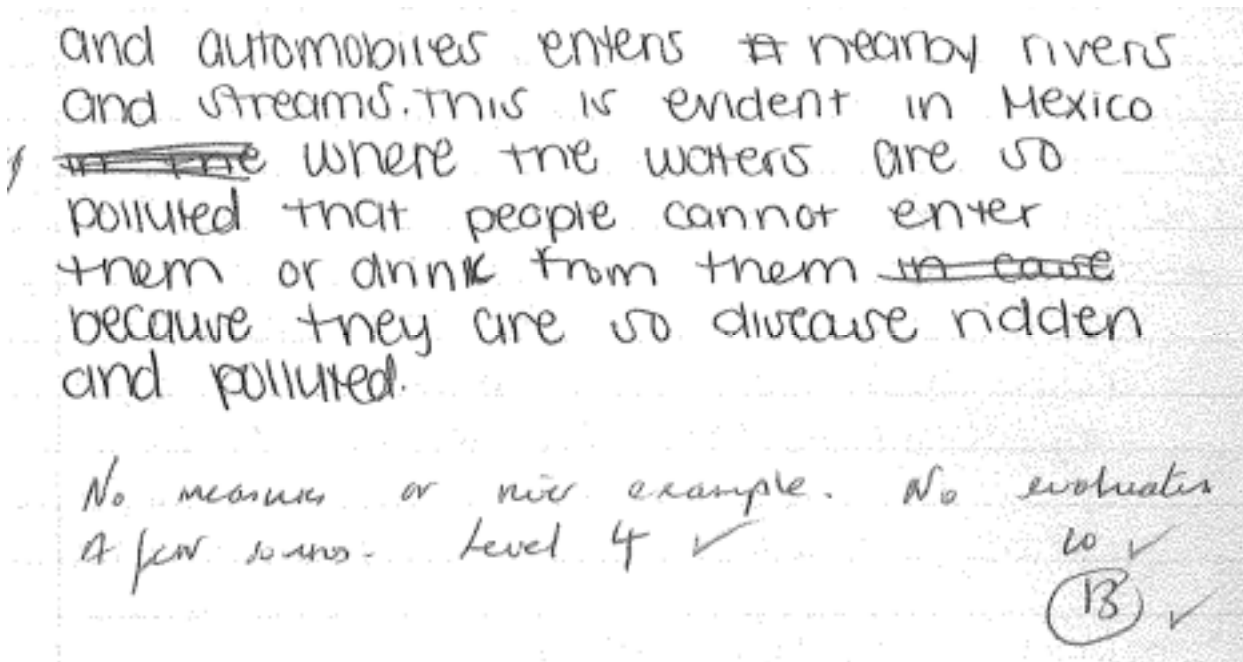 and automobiles enters nearby rivers
and streams. This is evident in Mexico
in the where the waters are so
polluted that people cannot enter
them or drink from them in case
because they are so disease ridden
and polluted.
No measures or river example. No evaluation
A few sources. Level 4 ✓
✓
13 ✓